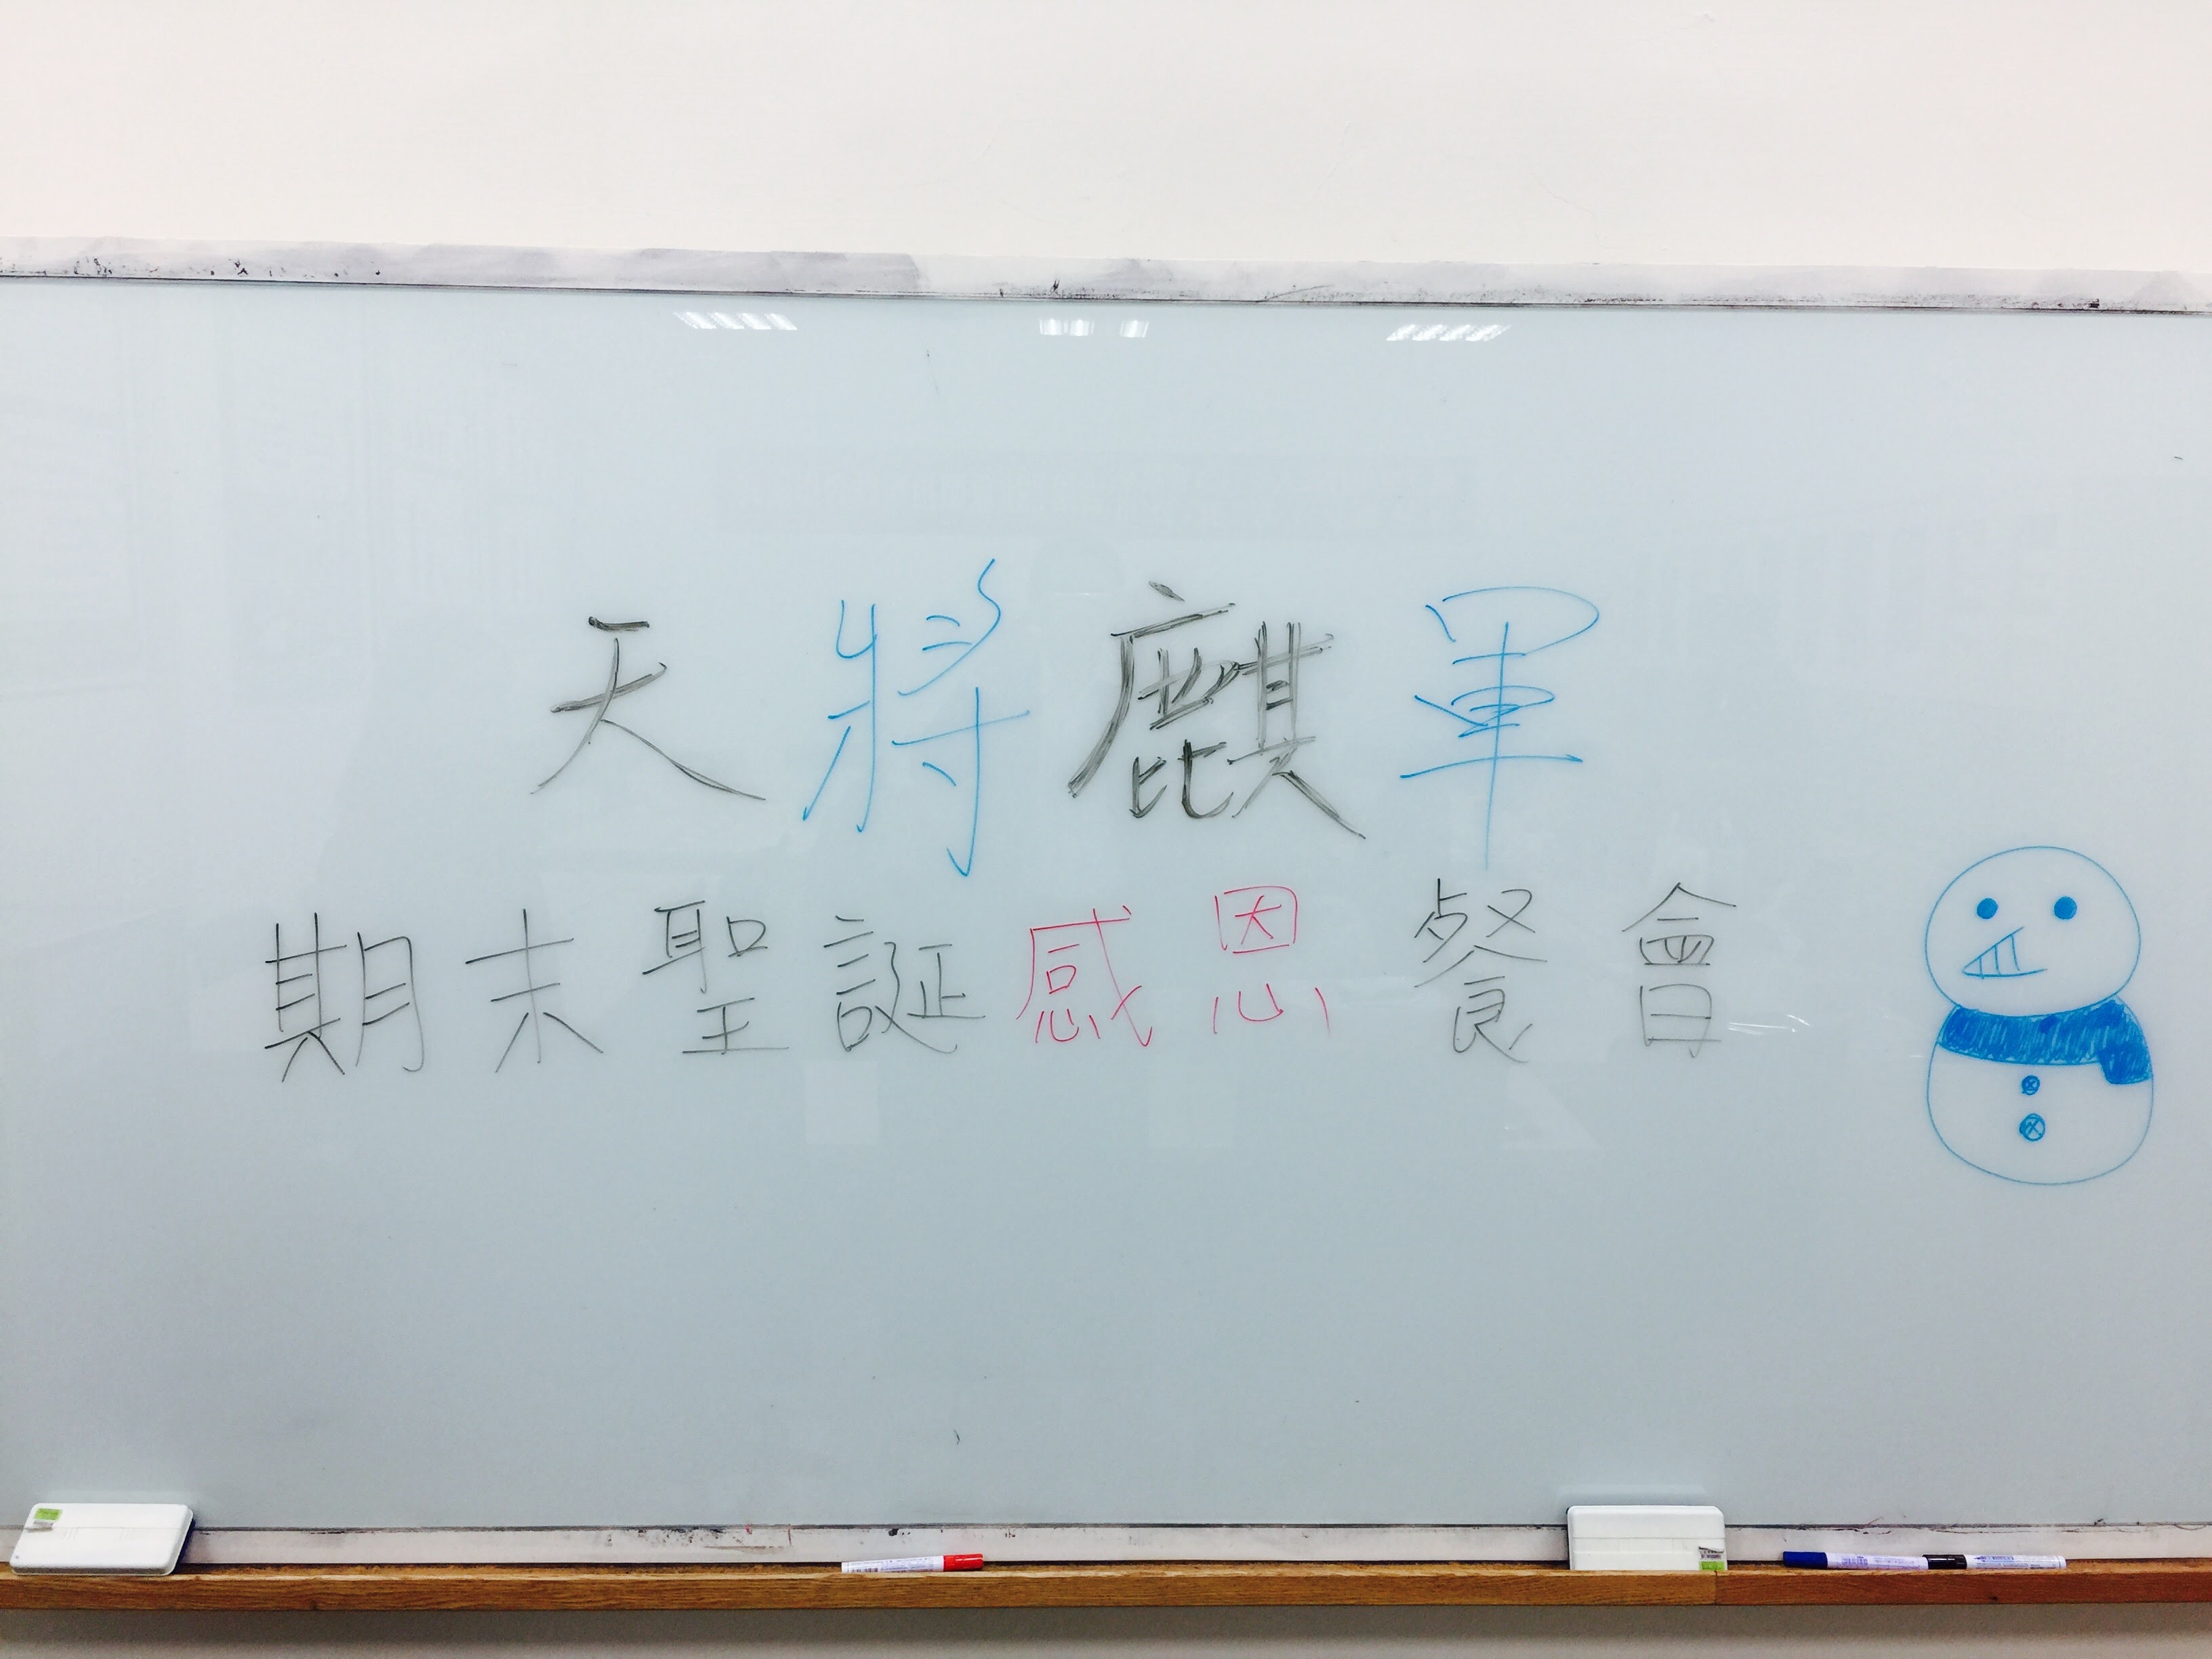 天將麒軍
期末聖誕感恩餐會